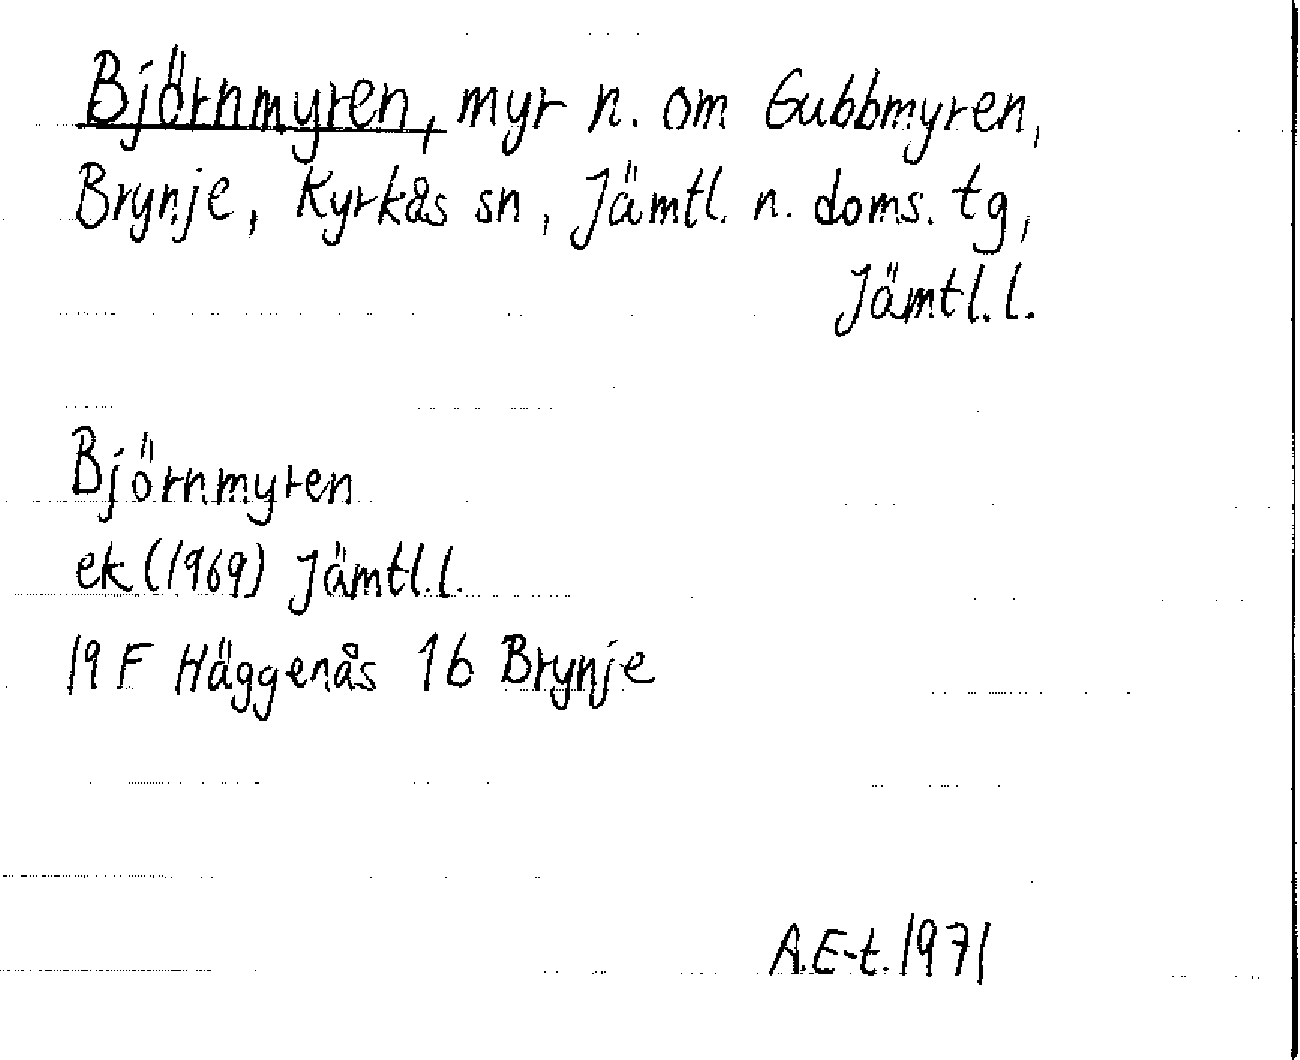 Björnmyren, myr n. om Gubbmyren,
Brynje, Kyrkås sn, Jämtl. n. doms. tg,
Jämtl. l.
Björnmyren
ek (1969) Jämtl. l.
19 F Häggenås 1b Brynje
A.E-t. 1971